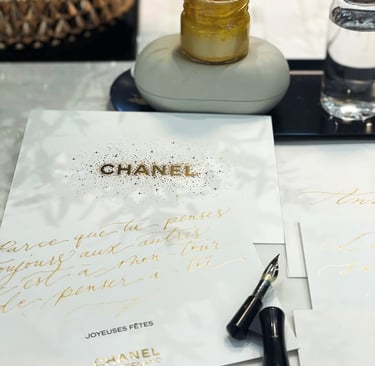 CHANEL
Parce que tu penses
toujours aux autres
c'est à mon tour
de penser à toi
JOYEUSES FÊTES
CHANEL